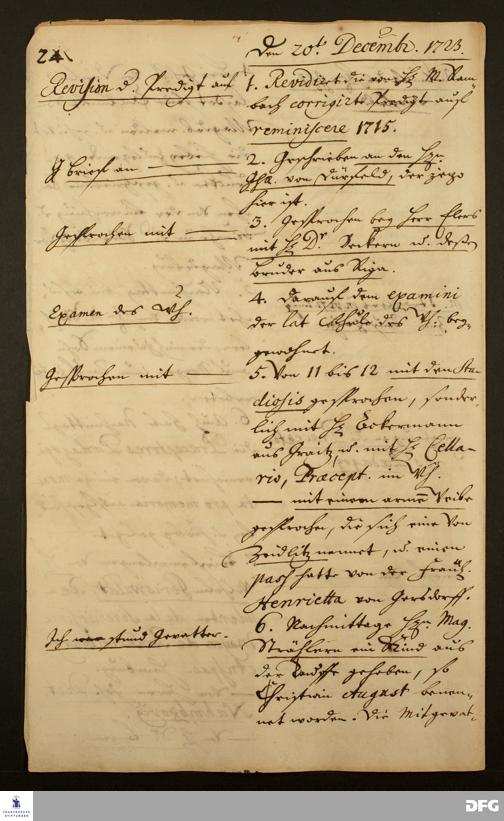 24
Den 20t. Decembr. 1723.
Revision d. Predigt auf
1. Revidiret die von H. M. Ram-
bach corrigirte Predigt auf
reminiscere 1715.
brief an
2. Geschrieben an den Hn.
von Dürfeld, der jetzo
hier ist.
Gesprochen mit
3. Gesprochen bey Herr Elers
mit H. Dr. u. deßen
Bruder aus Riga.
Examen des Wh.
4. Darauf dem examini
der lat des Wh. bey-
gewohnet.
Gesprochen mit
5. Von 11 bis 12 mit den Stu-
diosis gesprochen, sonder-
lich mit H. Eckermann
aus Graitz, u. mit H. Cella-
rio, Præcept. im Wh.
— mit einem arme Weibe
gesprochen, die sich eine von
Zedlitz nennet, u. einen
pass hatte von der Fräul.
Henrietta von Gersdorff.
Ich stund Gevatter.
6. Nachmittage Hn. Mag.
Strählern ein Kind aus
der Tauffe gehoben, so
Christian August benen-
net worden. Die Mitgevat-
FRANCKESCHE
STIFTUNGEN
DFG